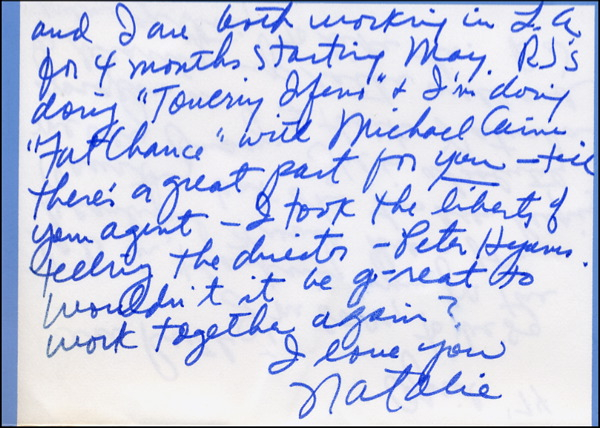 and I are both working in L.A.
for 4 months starting May. RJ's
doing "Towering Inferno" & I'm doing
"Fat Chance" with Michael Caine
there's a great part for you - tell
your agent - I took the liberty of
telling the director - Peter Hyams.
Wouldn't it be g-reat to
work together again?
I love you
Natalie